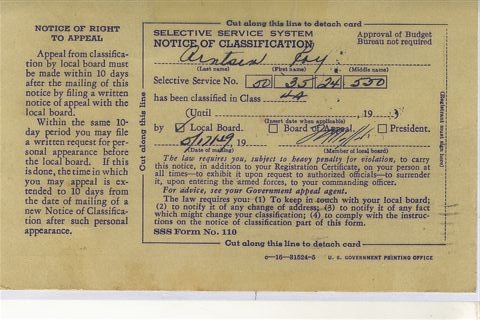 NOTICE OF RIGHT
TO APPEAL
Appeal from classifica-
tion by local board must
be made within 10 days
after the mailing of this
notice by filing a written
notice of appeal with the
local board.
Within the same 10-
day period you may file
a written request for per-
sonal appearance before
the local board. If this
is done, the time in which
you may appeal is ex-
tended to 10 days from
the date of mailing of a
new Notice of Classifica-
tion after such personal
appearance.
Cut along this line to detach card
SELECTIVE SERVICE SYSTEM
Approval of Budget
Bureau not required
NOTICE OF CLASSIFICATION
Joy
(Last name) (First name) (Middle name)
Selective Service No. 50 35 24 550
has been classified in Class 4A
(Until 19 3)
(Insert date when applicable)
by ☑ Local Board. ☐ Board of Appeal. ☐ President.
19
(Date of mailing) (Member of local board)
The law requires you, subject to heavy penalty for violation, to carry
this notice, in addition to your Registration Certificate, on your person at
all times—to exhibit it upon request to authorized officials—to surrender
it, upon entering the armed forces, to your commanding officer.
For advice, see your Government appeal agent.
The law requires you: (1) To keep in touch with your local board;
(2) to notify it of any change of address; (3) to notify it of any fact
which might change your classification; (4) to comply with the instruc-
tions on the notice of classification part of this form.
SSS Form No. 110
Cut along this line to detach card
Cut along this line to detach card
(Registrant must sign here)
c—16—31524-5 U. S. GOVERNMENT PRINTING OFFICE